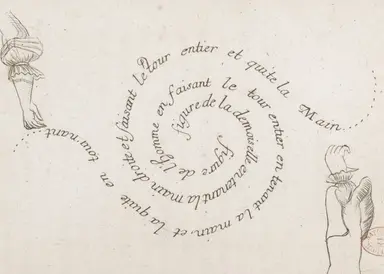 figure de la demoiselle en tenant la main droite et faisant le tour entier et quite la Main
figure de l'homme en faisant le tour entier en tenant la main et la quite en tournant